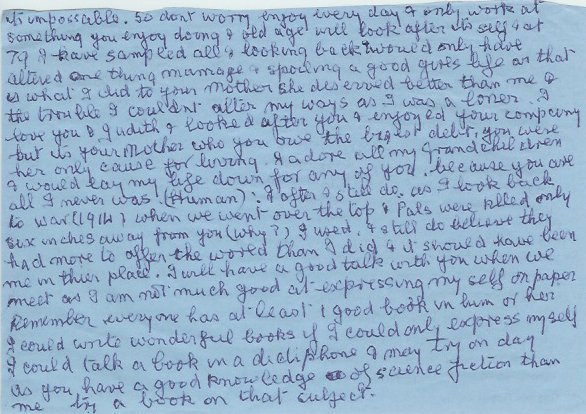 its impossable. So dont worry enjoy every day & only work at
something you enjoy doing & old age will look after its self & at
79 I have sampled all & looking back would only have
altered one thing marriage & spoiling a good girls life as that
is what I did to your Mother she deserved better than me &
the trouble I couldnt alter my ways as I was a loner. I
love you & Judith & looked after you & enjoyed your company
but its your Mother who you owe the bigest debt, you were
her only cause for living. I adore all my Grandchildren
I would lay my life down for any of you. because you are
all I never was! (Human). I often & still do. as I look back
to war (1914) when we went over the top & Pals were killed only
six inches away from you (why?) I used. & still do believe they
had more to offer the world than I did & it should have been
me in thier place. I will have a good talk with you when we
meet as I am not much good at expressing my self on paper
Remember everyone has at least 1 good book in him or her
I could write wonderful books if I could only express myself
I could talk a book in a dictiphone & may try on day
as you have a good knowledge of science fiction than
me try a book on that subject.